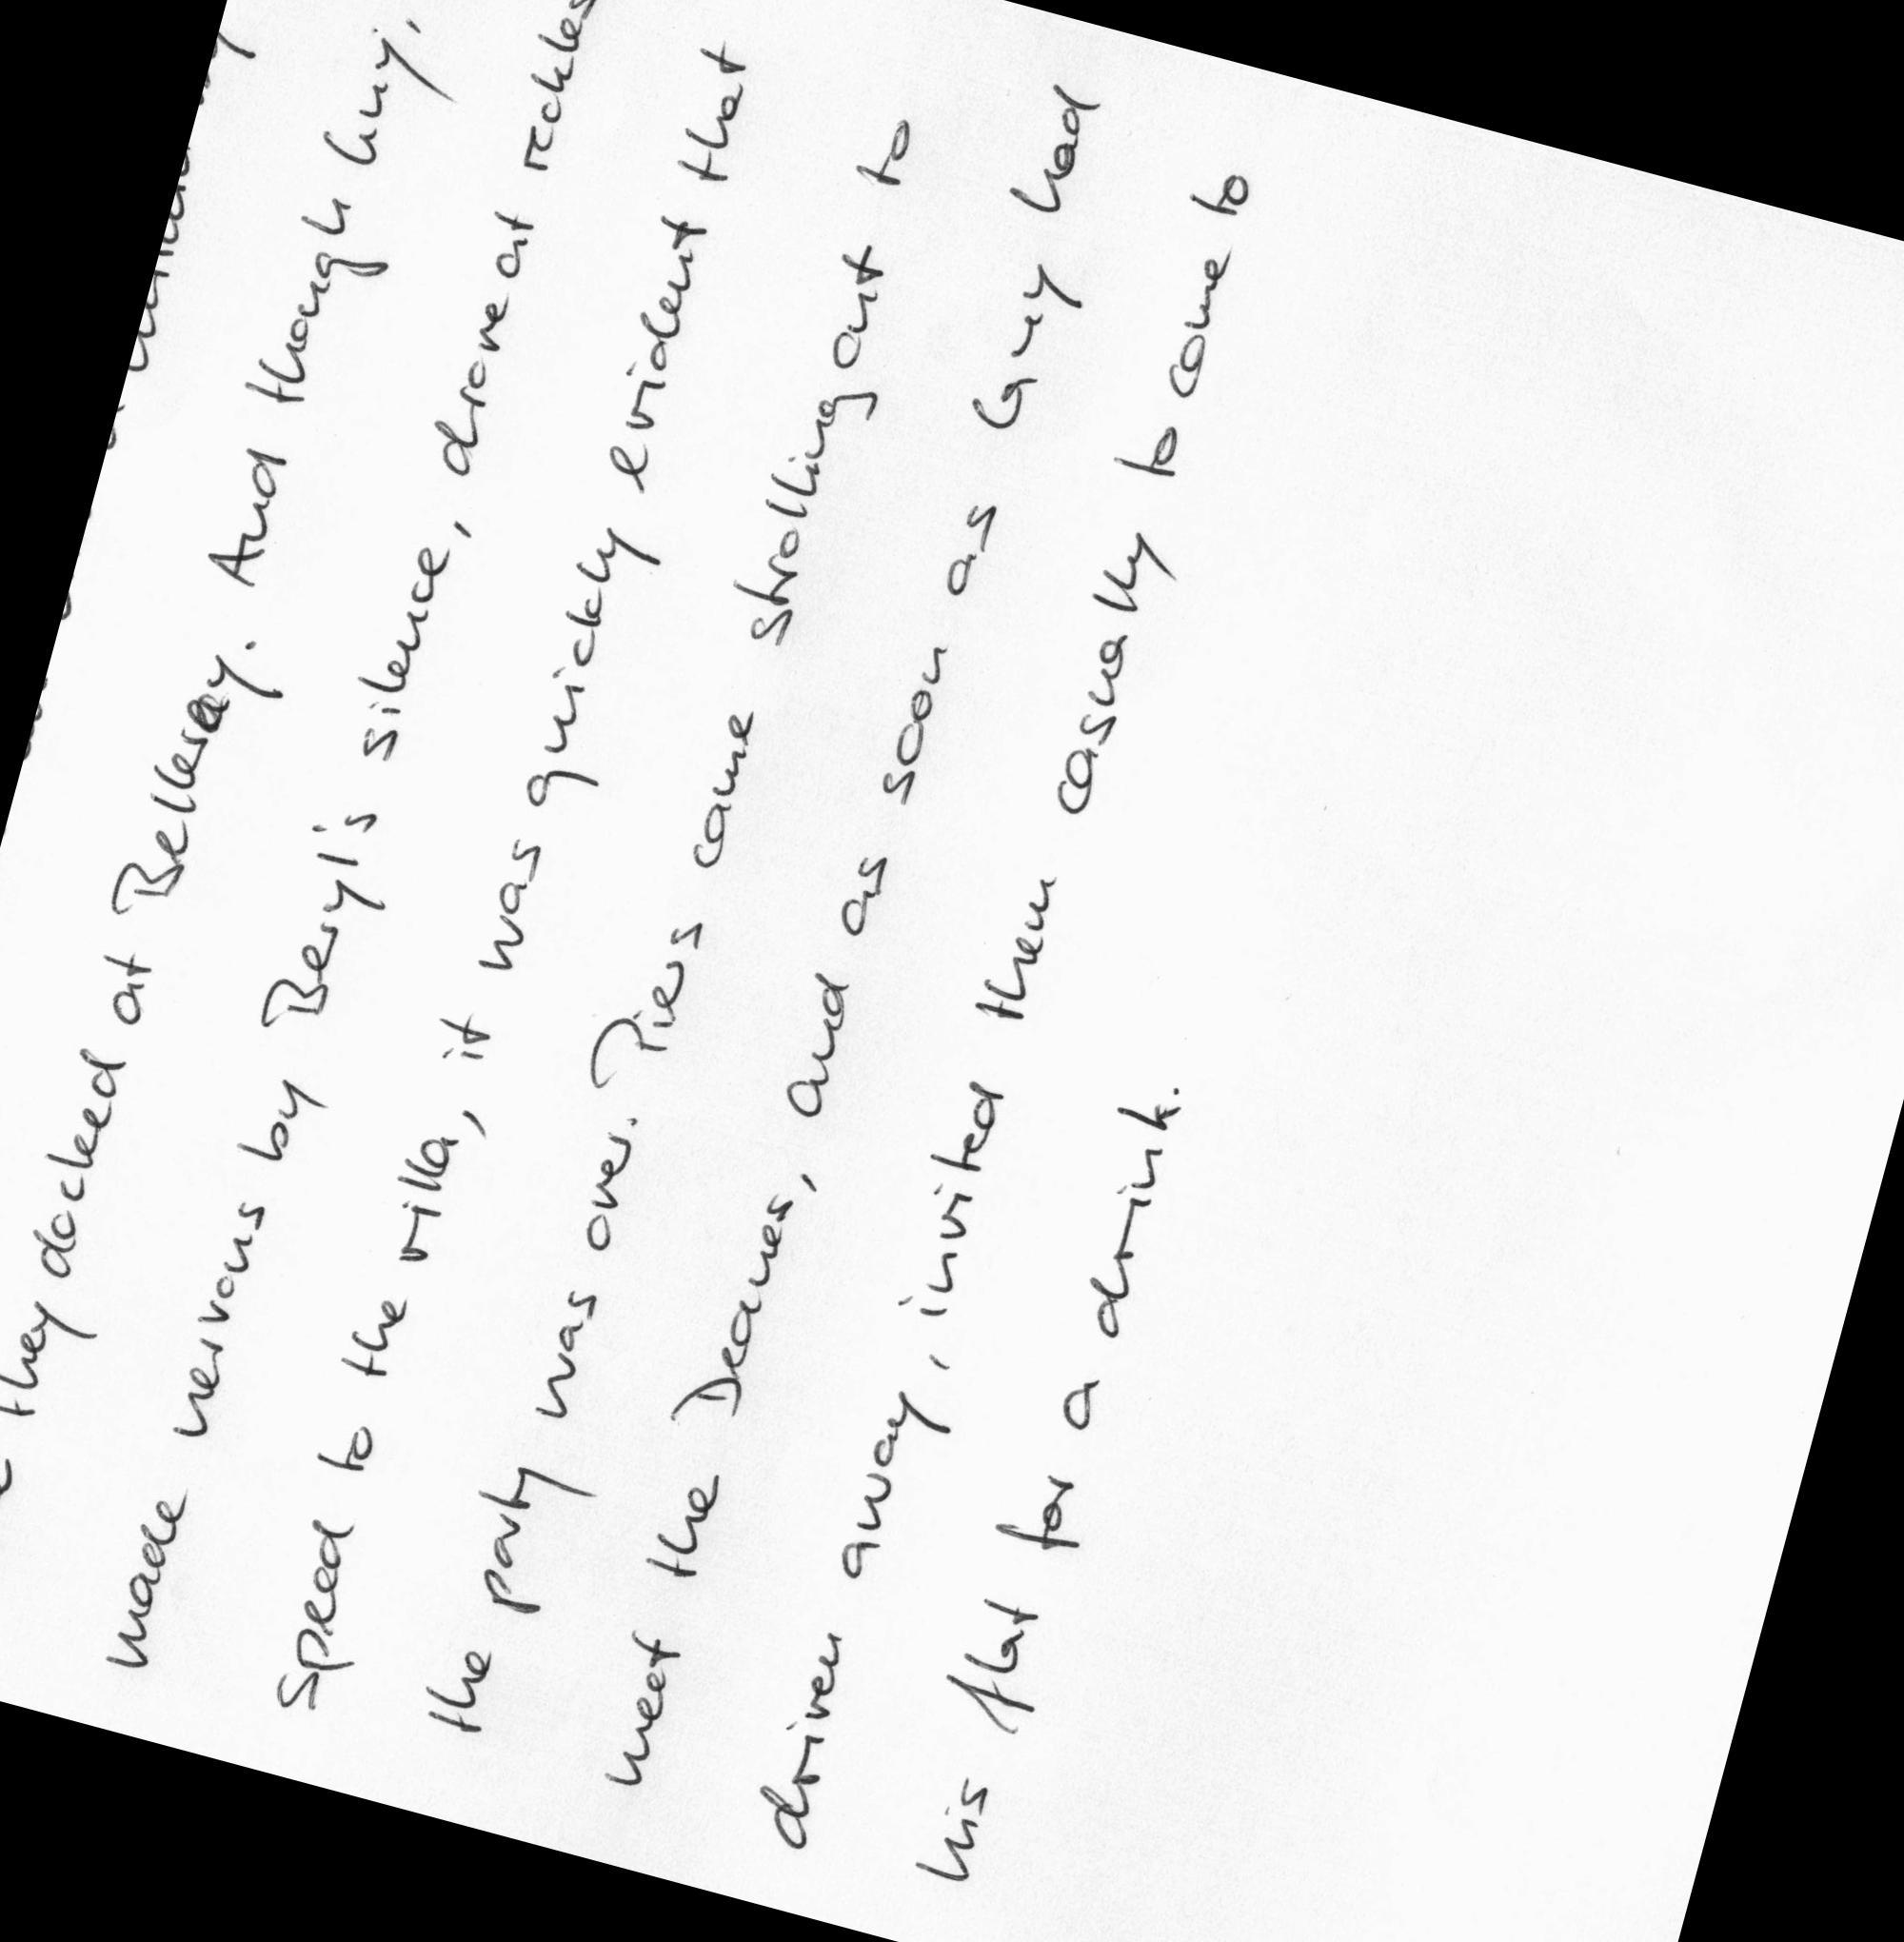 they docked at Belleray. And though Guy,
made nervous by Beryl's silence, drove at reckless
speed to the villa, it was quickly evident that
the party was over. Piers came strolling out to
meet the Deanes, and as soon as Guy had
driven away, invited them casually to come to
his flat for a drink.